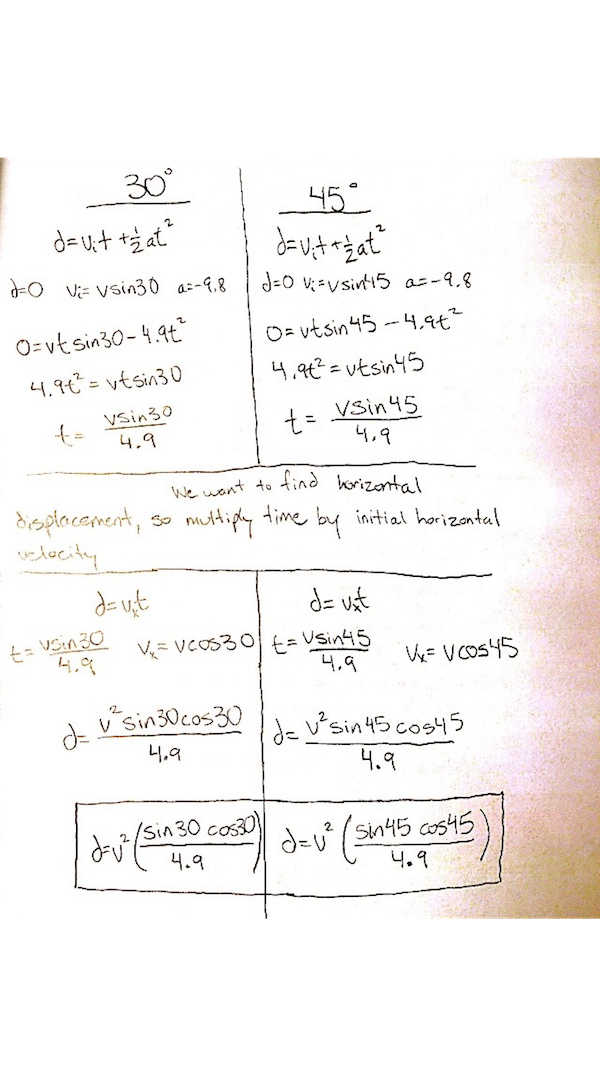 30°
d=vᵢt+½at²
d=0 vᵢ=vsin30 a=-9.8
0=vtsin30-4.9t²
4.9t²=vtsin30
t= vsin30/4.9
45°
d=vᵢt+½at²
d=0 vᵢ=vsin45 a=-9.8
0=vtsin45-4.9t²
4.9t²=vtsin45
t= vsin45/4.9
We want to find horizontal
displacement, so multiply time by initial horizontal
velocity
d=vₓt
t= vsin30/4.9 vₓ=vcos30
d= v²sin30cos30/4.9
d=v²(sin30 cos30/4.9)
d=vₓt
t= vsin45/4.9 vₓ=vcos45
d= v²sin45cos45/4.9
d=v²(sin45 cos45/4.9)